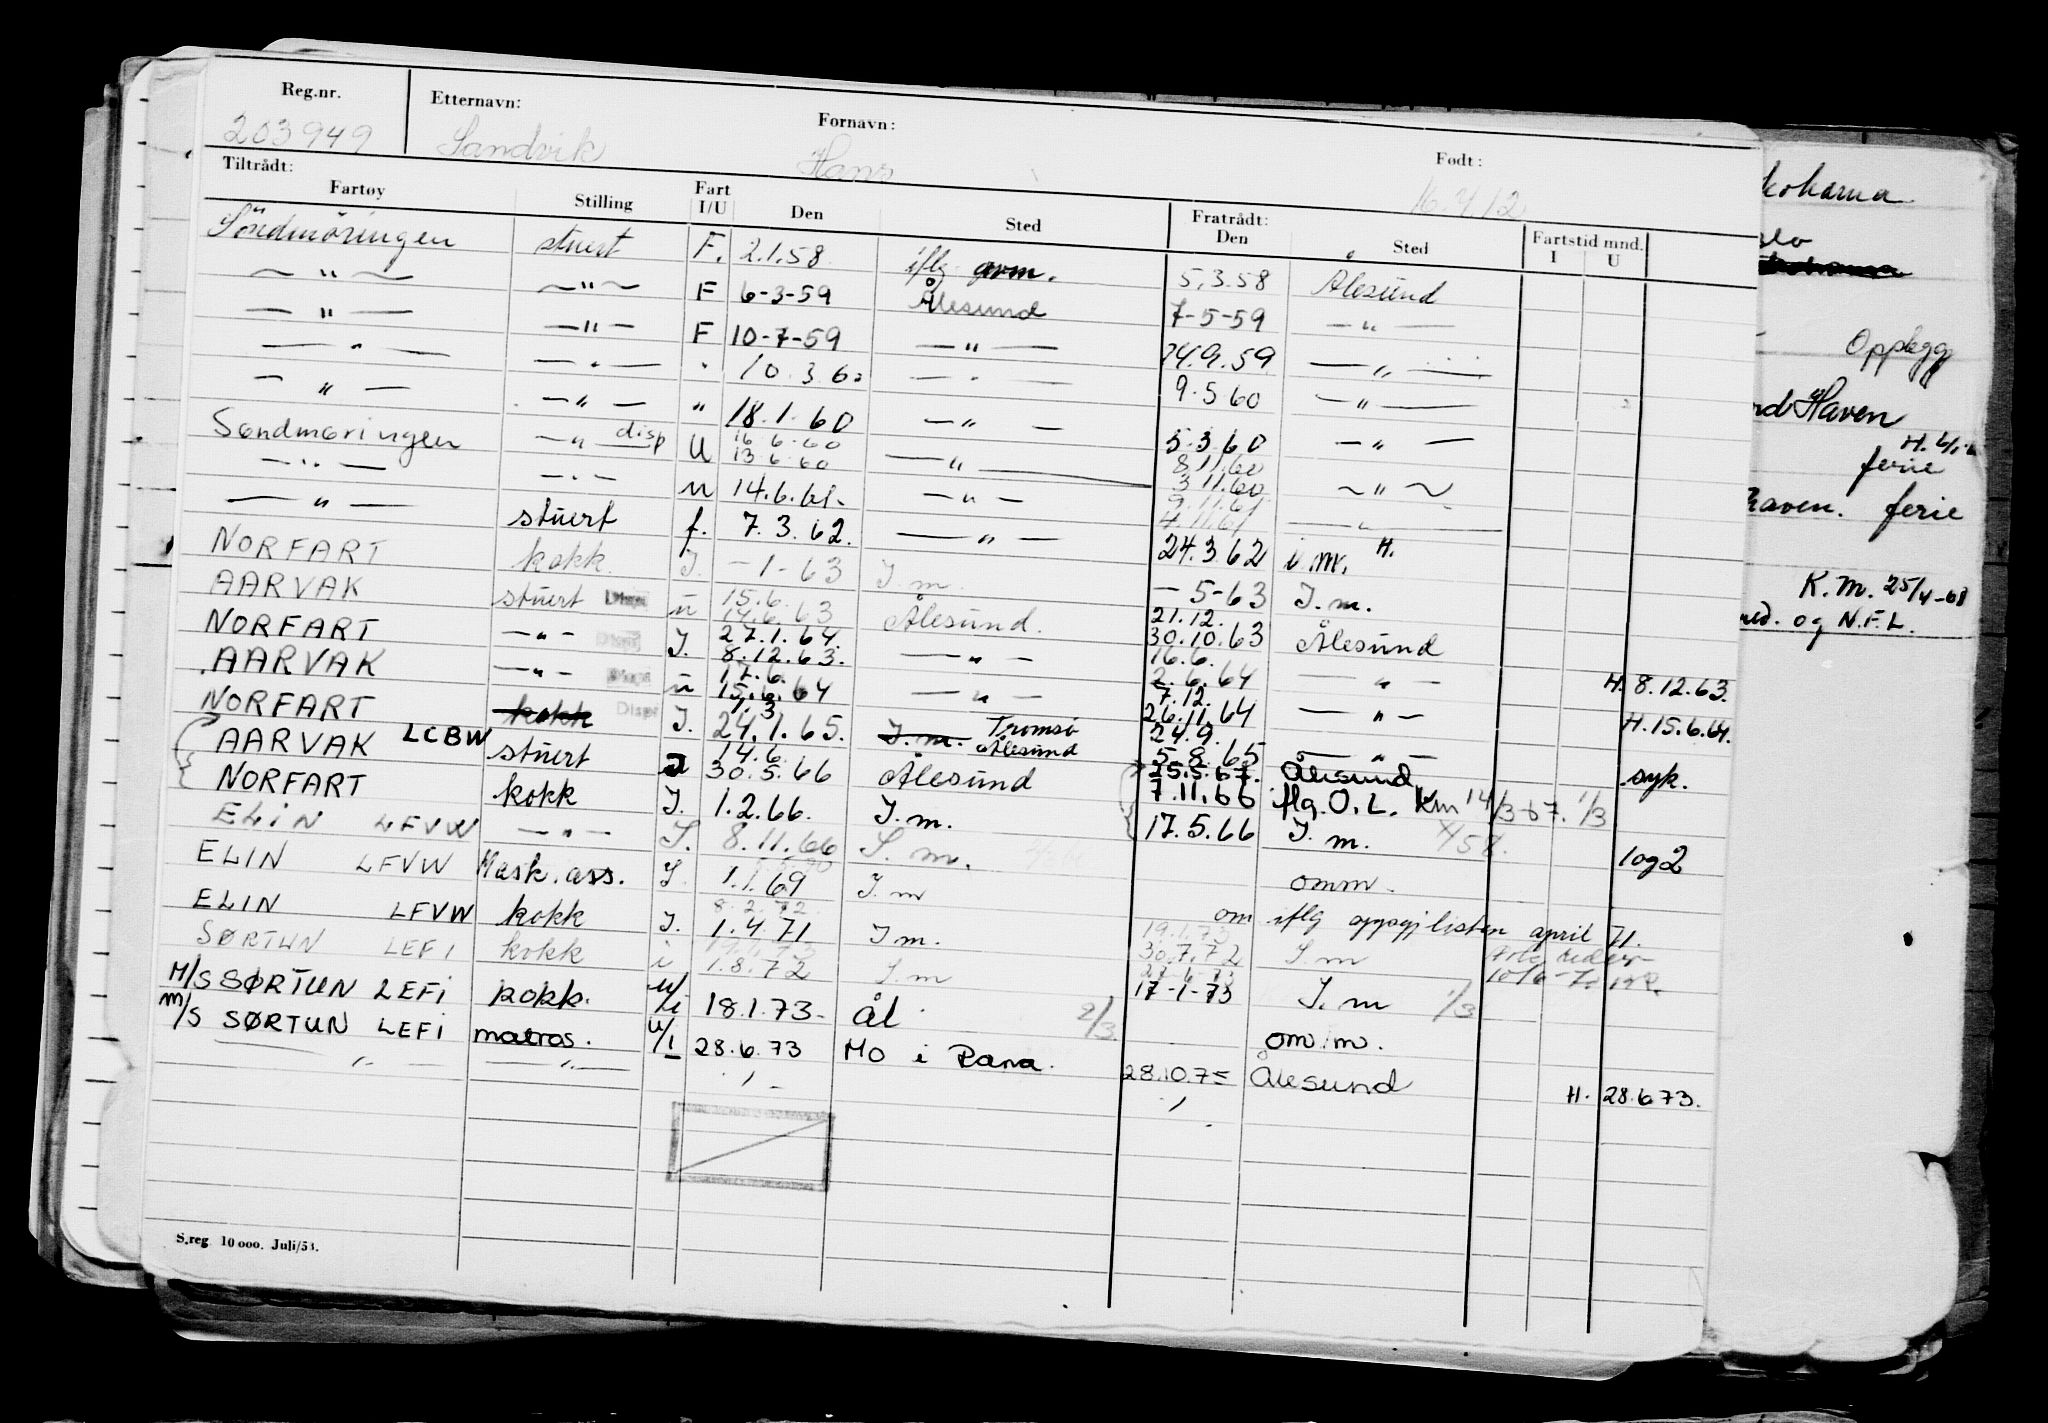 Reg.nr. Etternavn: Fornavn: Født:
203949 Sandvik Hans 16.4.12
Tiltrådt: Fratrådt:
Fartøy Stilling Fart I/U Den Sted Den Sted Fartstid mnd. I U
Søndmøringen stuert F. 2.1.58 iflg. avm. 5.3.58 Ålesund
— " — — " — F 6-3-59 Ålesund 7-5-59 — " —
— " — — " — F 10-7-59 — " — 24.9.59 — " —
— " — — " — " 10.3.60 — " — 9.5.60 — " —
— " — — " — " 18.1.60 — " — 5.3.60 — " —
Søndmøringen — " — disp U 16.6.60 13.6.60 — " — 8.11.60 3.11.60 — " —
— " — — " — u 14.6.61. — " — 9.11.61 4.11.61 — " —
— " — stuert f. 7.3.62. — " — 24.3.62 i.m. H.
NORFART kokk. I. -1-63 I.m. -5-63 I.m.
AARVAK stuert Disp u 15.6. 14.6.63 Ålesund. 21.12. 30.10.63 Ålesund
NORFART — " — I. 27.1.64. 8.12.63. — " — 16.6. 2.6.64 — " — H. 8.12.63.
AARVAK — " — Disp u 17.6. 15.6.64 — " — 7.12. 26.11.64 — " — H. 15.6.64.
NORFART kokk Disp I. 24.1.65. I.m. Tromsø Ålesund 24.9. 5.8.65 — " — syk.
AARVAK LCBW stuert 14.6. 30.5.66 Ålesund 25.5.67. Ålesund 7.11.66 iflg. O.L. Km 14/3-67. 1/3
NORFART kokk I. 1.2.66. I.m. 17.5.66 I.m. 1og2
ELIN LFVW — " — I. 8.11.66 I.m. omm.
ELIN LFVW Mask.ass. I. 1.1.69 I.m om iflg oppgjlisten april 71.
ELIN LFVW kokk I. 8.2.72 1.4.71 I m. 19.1.73 30.7.72 I.m
SØRTUN LEFI kokk i 1.8.72 I.m 27-6-73 17-1-73 I.m 1/3
M/S SØRTUN LEFI kokk. u/i 18.1.73- Ål 2/3 om.m.
m/S SØRTUN LEFI matros. u/i 28.6.73 Mo i Rana. 28.10.75 Ålesund H. 28.6.73.
— " — — " — — " —
S.reg. 10 000. Juli/53.
Opplegg
Haven
ferie
haven. ferie
K.M. 25/4-68
og N.F.L.